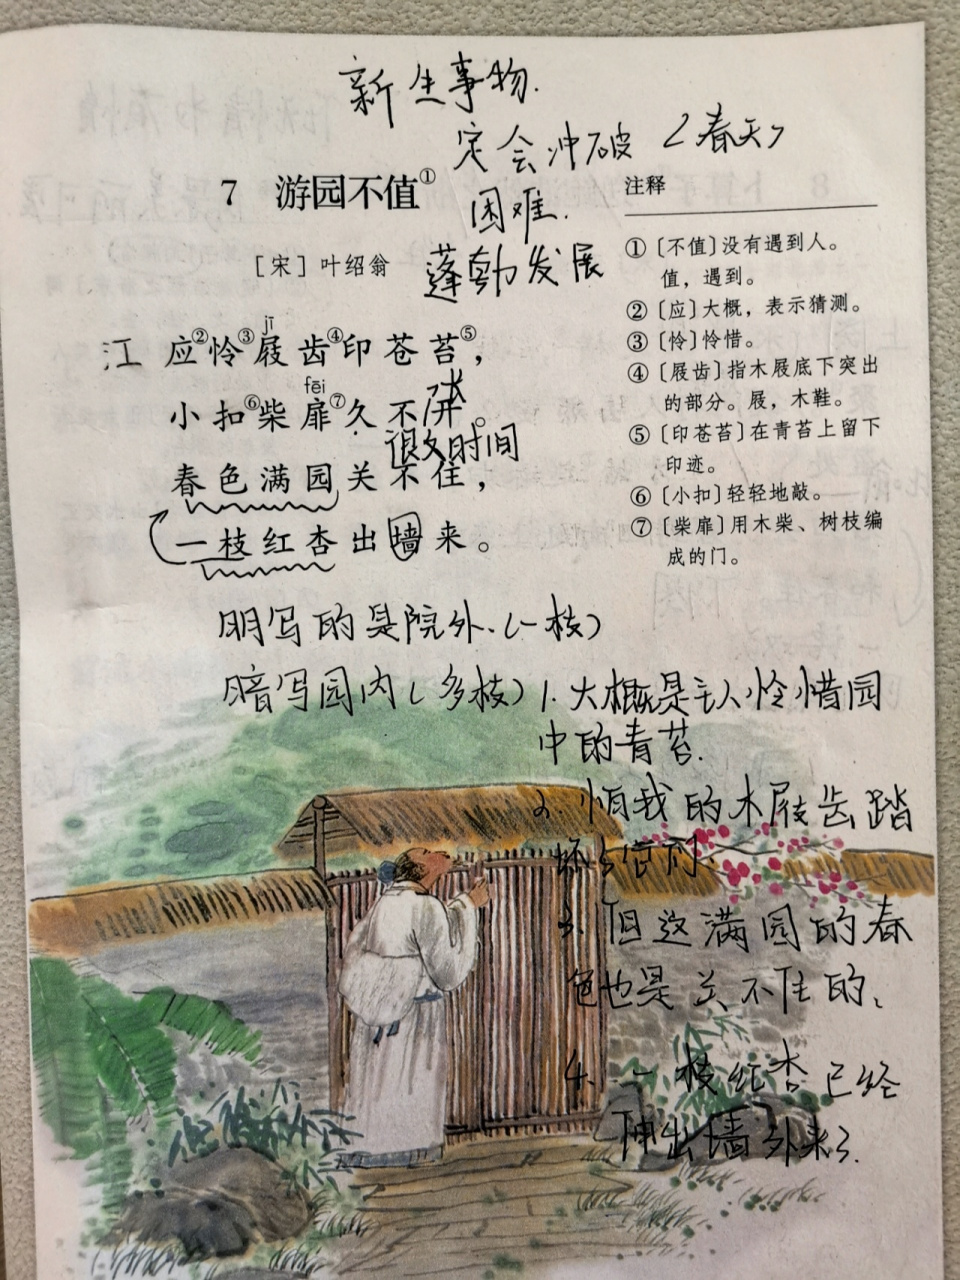 新生事物.
定会冲破 <春天>
困难.
蓬勃发展
7 游园不值①
[宋] 叶绍翁
jī
江 应②怜③屐齿④印苍苔⑤，
fēi
小扣⑥柴扉⑦久不开。
很久时间
春色满园关不住，
一枝红杏出墙来。
注释
① 〔不值〕没有遇到人。
值，遇到。
② 〔应〕大概，表示猜测。
③ 〔怜〕怜惜。
④ 〔屐齿〕指木屐底下突出
的部分。屐，木鞋。
⑤ 〔印苍苔〕在青苔上留下
印迹。
⑥ 〔小扣〕轻轻地敲。
⑦ 〔柴扉〕用木柴、树枝编
成的门。
明写的是院外.(一枝)
暗写园内(多枝)
1. 大概是主人怜惜园
中的青苔.
2. 怕我的木屐齿踏
坏了它们
3. 但这满园的春
色也是关不住的、
4. 一枝红杏已经
伸出墙外来了.